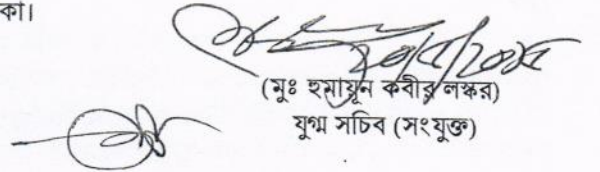 কা।
(মুঃ হুমায়ুন কবীর লস্কর)
যুগ্ম সচিব (সংযুক্ত)